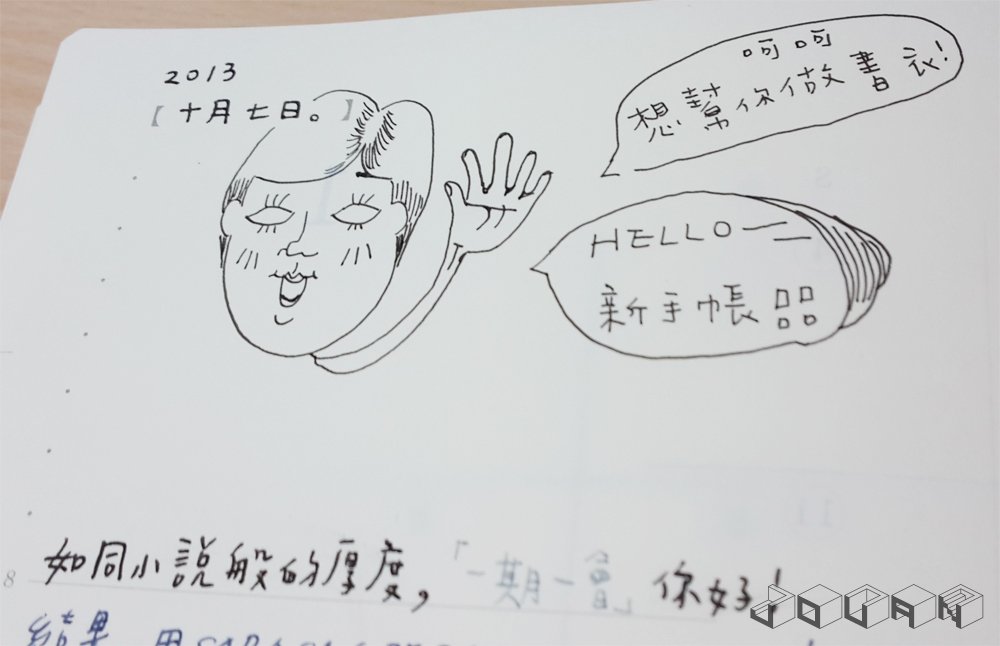 2013
【十月七日。】
呵呵
想幫你做書衣!
HELLO一二
新手帳
如同小說般的厚度,「一期一會」你好!
結果 用
8
11
JOUAN